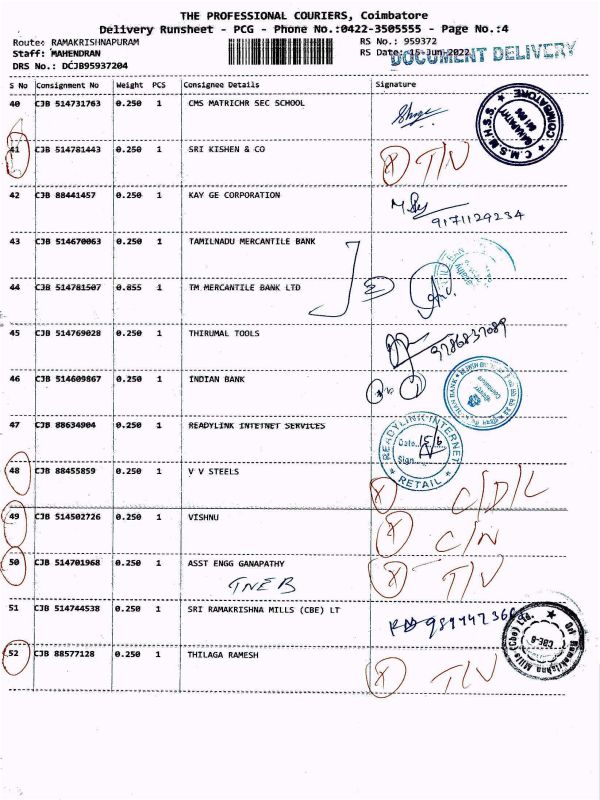 THE PROFESSIONAL COURIERS, Coimbatore
Delivery Runsheet - PCG - Phone No.:0422-3505555 - Page No.:4
Route: RAMAKRISHNAPURAM RS No.: 959372
Staff: MAHENDRAN RS Date: 15-Jun-2022
DOCUMENT DELIVERY
DRS No.: DCJB95937204
S No Consignment No Weight PCS Consignee Details Signature
40 CJB 514731763 0.250 1 CMS MATRICHR SEC SCHOOL
C.M.S.M.H.S.S. COIMBATORE
GANAPATHY
41 CJB 514781443 0.250 1 SRI KISHEN & CO
X T/N
42 CJB 88441457 0.250 1 KAY GE CORPORATION
9171129234
43 CJB 514670063 0.250 1 TAMILNADU MERCANTILE BANK
44 CJB 514781507 0.855 1 TM MERCANTILE BANK LTD
2
45 CJB 514769028 0.250 1 THIRUMAL TOOLS
9786837089
46 CJB 514609867 0.250 1 INDIAN BANK
47 CJB 88634904 0.250 1 READYLINK INTEINET SERVICES
READYLINK-INTERNET
Date..15/6
Sign
RETAIL
48 CJB 88455859 0.250 1 V V STEELS
X C/D/L
49 CJB 514502726 0.250 1 VISHNU
X C/N
50 CJB 514701968 0.250 1 ASST ENGG GANAPATHY
TNEB
X T/N
51 CJB 514744538 0.250 1 SRI RAMAKRISHNA MILLS (CBE) LT
Sri Ramakrishna Mills (Cbe) Ltd.
CBE-6
52 CJB 88577128 0.250 1 THILAGA RAMESH
X T/N